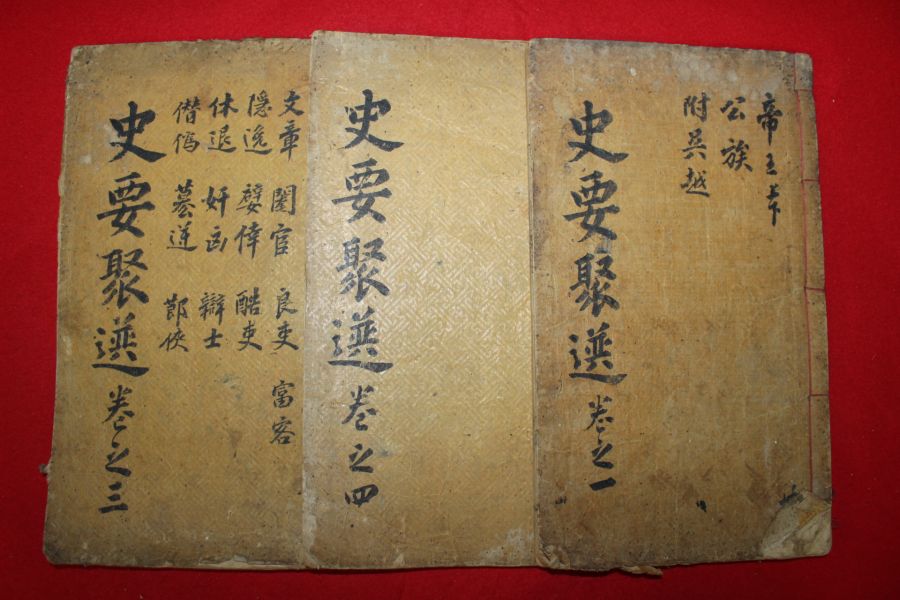 帝王上下
公族
附吳越
史要聚選卷之一
史要聚選卷之四
文章 閹官 良吏 富客
隱逸 嬖倖 酷吏
休退 奸凶 辯士
僭僞 簒逆 節俠
史要聚選卷之三